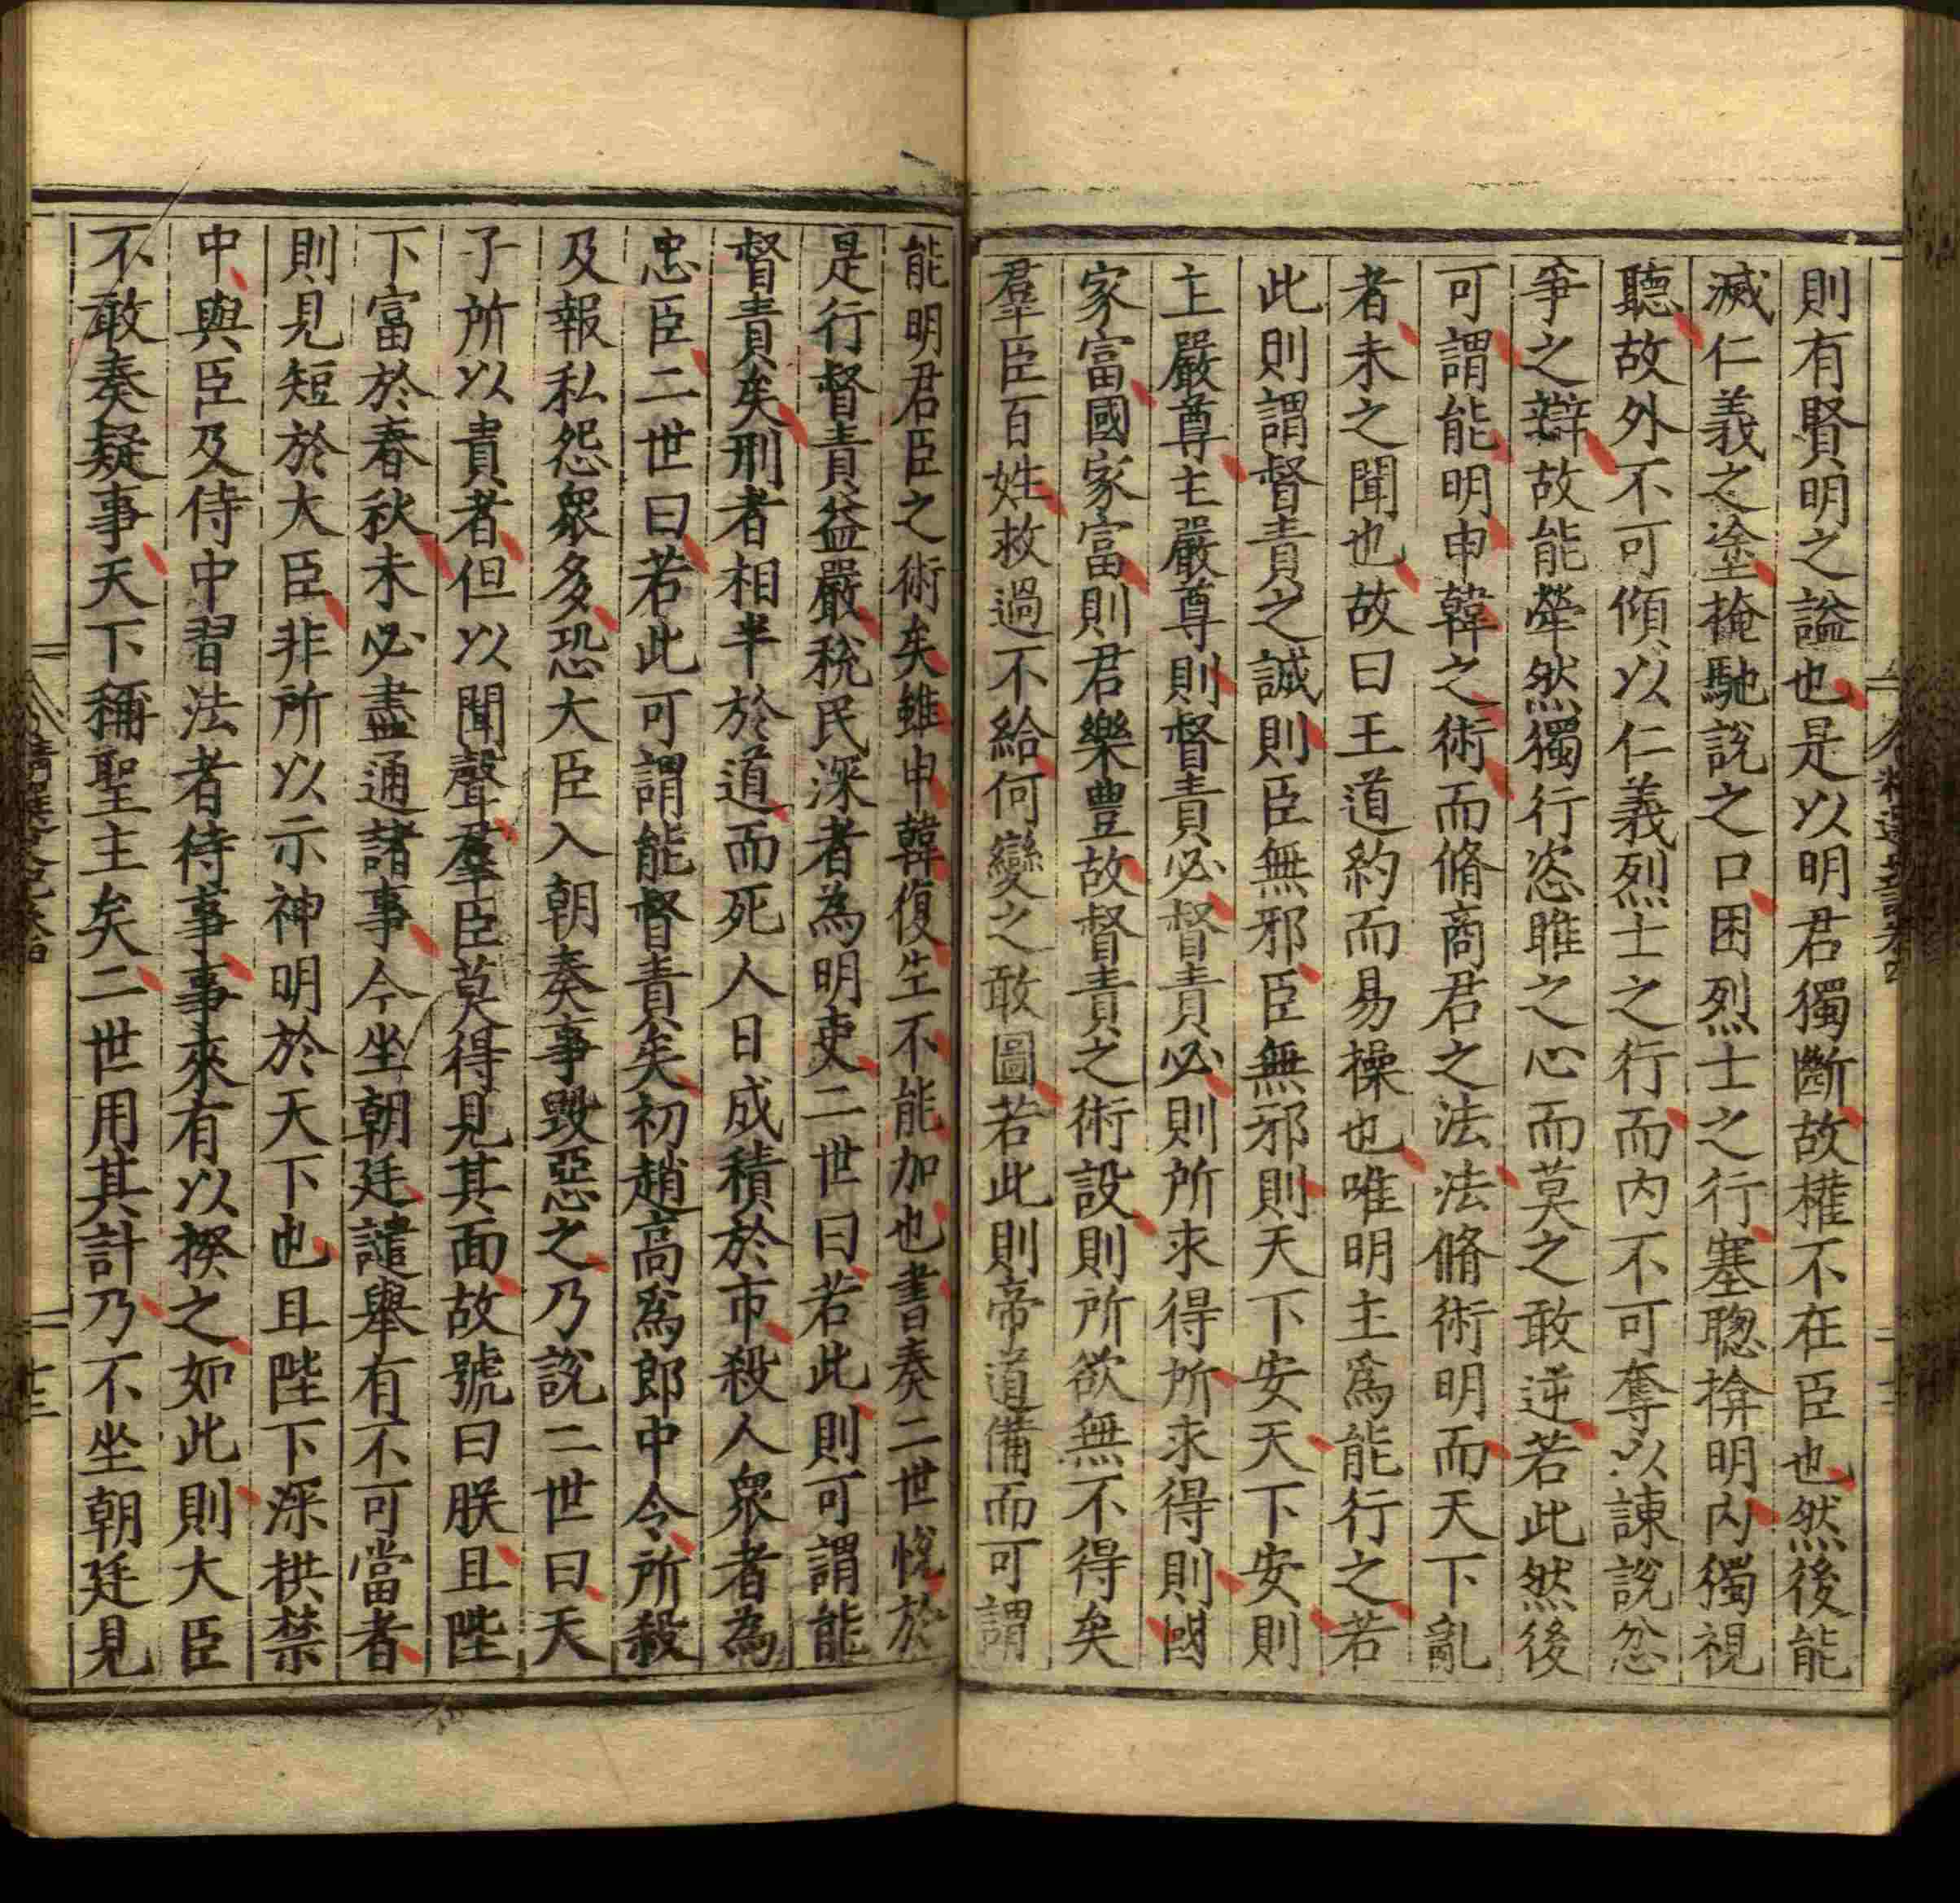 則有賢明之謚也是以明君獨斷故權不在臣也然後能
滅仁義之塗掩馳說之口困烈士之行塞聰揜明内獨視
聽故外不可傾以仁義烈士之行而内不可奪以諫說忿
爭之辯故能犖然獨行恣睢之心而莫之敢逆若此然後
可謂能明申韓之術而脩商君之法法脩術明而天下亂
者未之聞也故曰王道約而易操也唯明主爲能行之若
此則謂督責之誠則臣無邪臣無邪則天下安天下安則
主嚴尊主嚴尊則督責必督責必則所求得所求得則國
家富國家富則君樂豊故督責之術設則所欲無不得矣
羣臣百姓救過不給何變之敢圖若此則帝道備而可謂
能明君臣之術矣雖申韓復生不能加也書奏二世悅於
是行督責益嚴稅民深者為明吏二世曰若此則可謂能
督責矣刑者相半於道而死人日成積於市殺人衆者為
忠臣二世曰若此可謂能督責矣初趙高爲郎中令所殺
及報私怨衆多恐大臣入朝奏事毀惡之乃說二世曰天
子所以貴者但以聞聲羣臣莫得見其面故號曰朕且陛
下富於春秋未必盡通諸事今坐朝廷譴舉有不可當者
則見短於大臣非所以示神明於天下也且陛下深拱禁
中與臣及侍中習法者待事事來有以揆之如此則大臣
不敢奏疑事天下稱聖主矣二世用其計乃不坐朝廷見
十三